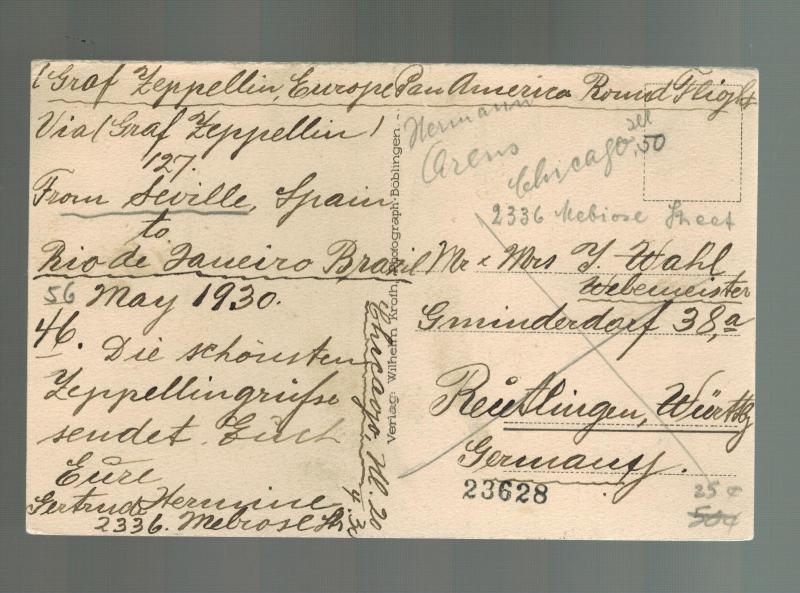 (Graf Zeppellin, Europe Pan America Round Flight
Via (Graf Zeppellin)
127.
From Seville, Spain
to
Rio de Janeiro Brazil
56 May 1930.
46.
Die schönsten
Zeppellingrüsse
sendet Euch
Eure
Gertrud Hermine
2336. Melrose St.
Chicago, Ill. 20
4.30
Verlag: Wilhelm Kroth, Photograph-Böblingen.
Hermann
Arens
Chicago, Ill
50
2336 Melrose Street
Mr & Mrs J. Wahl
Webemeister
Gminderdorf 38,a
Reutlingen, Württbg
Germany.
23628
25 ¢
50¢